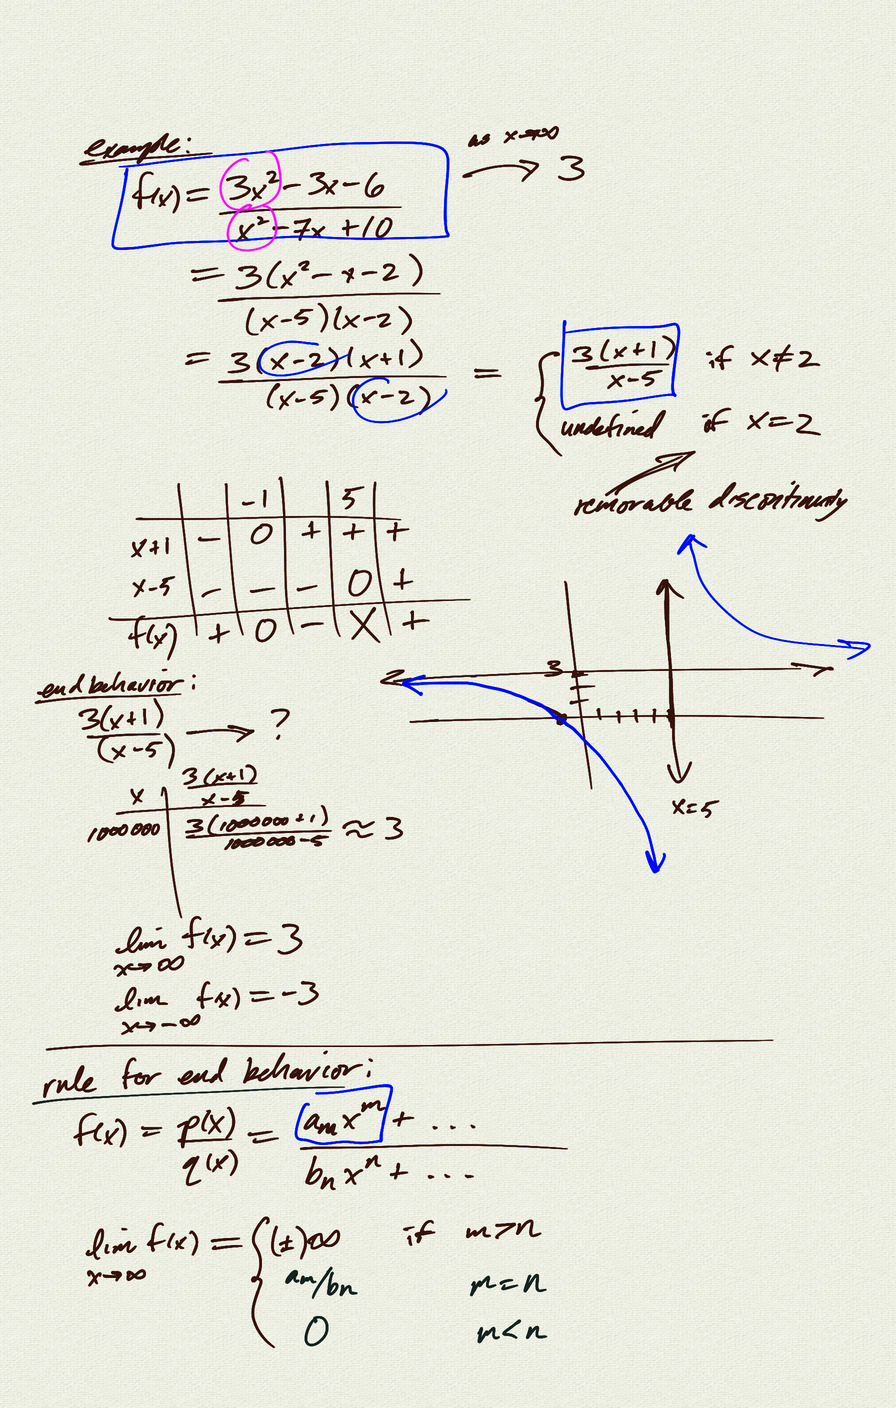 example:
f(x) = (3x² - 3x - 6)/(x² - 7x + 10) → 3 as x→∞
= 3(x² - x - 2)/((x-5)(x-2))
= 3(x-2)(x+1)/((x-5)(x-2)) = { 3(x+1)/(x-5) if x≠2
undefined if x=2
removable discontinuity
-1 5
x+1 - 0 + + +
x-5 - - - 0 +
f(x) + 0 - X +
3
x=5
end behavior:
3(x+1)/(x-5) → ?
x 3(x+1)/(x-5)
1000000 3(1000000+1)/(1000000-5) ≈ 3
lim x→∞ f(x) = 3
lim x→-∞ f(x) = -3
rule for end behavior:
f(x) = p(x)/q(x) = (aₘxᵐ + ...)/(bₙxⁿ + ...)
lim x→∞ f(x) = { (±)∞ if m>n
aₘ/bₙ m=n
0 m<n